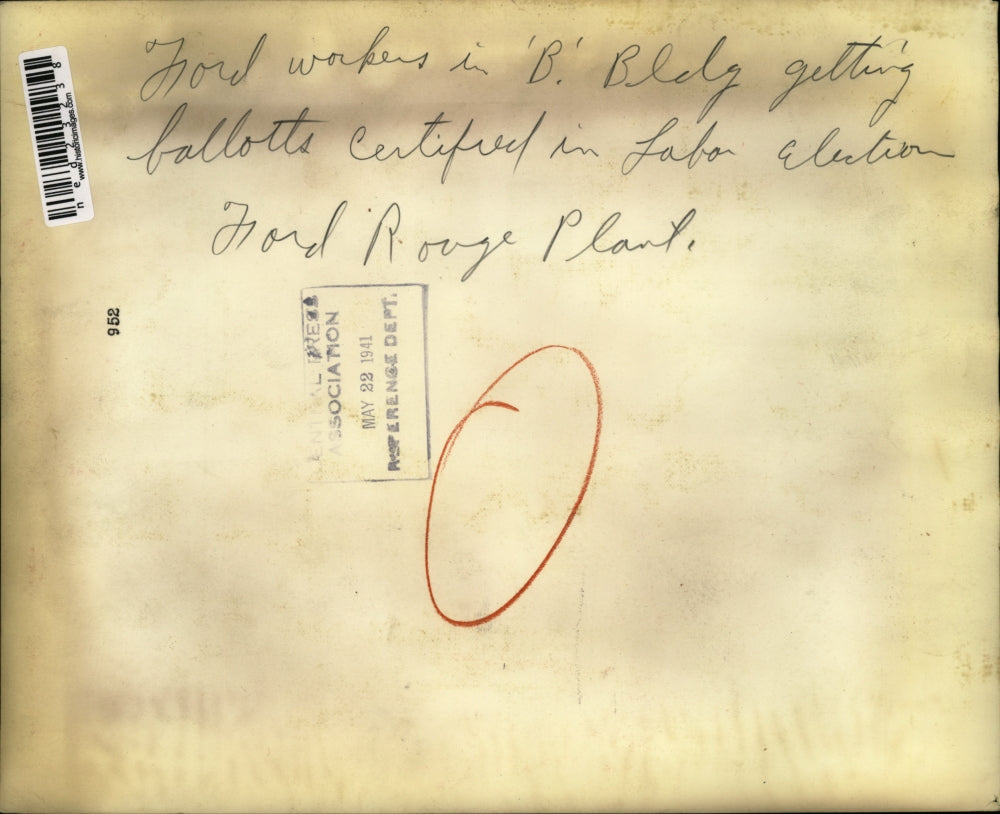 Ford workers in 'B'. Bldg getting
ballotts certified in Labor election
Ford Rouge Plant.
PRESS
ASSOCIATION
MAY 22 1941
REFERENCE DEPT.
952
www.historicimages.com
ned23238